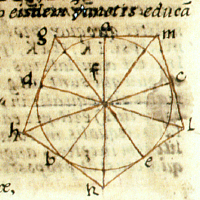 eisdem punctis educā
g a m
f
d c
h l
b e
n
æ,